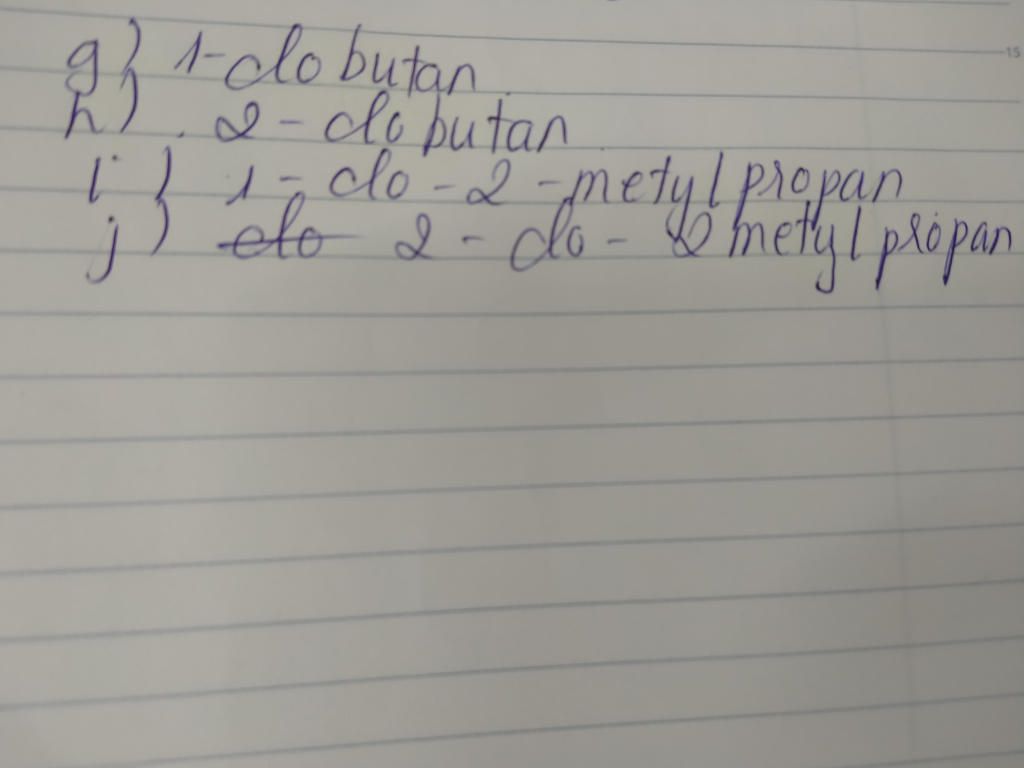 g) 1-clo butan
h) 2-clo butan
i) 1-clo-2-metyl propan
j) clo 2-clo-2 metyl propan
15